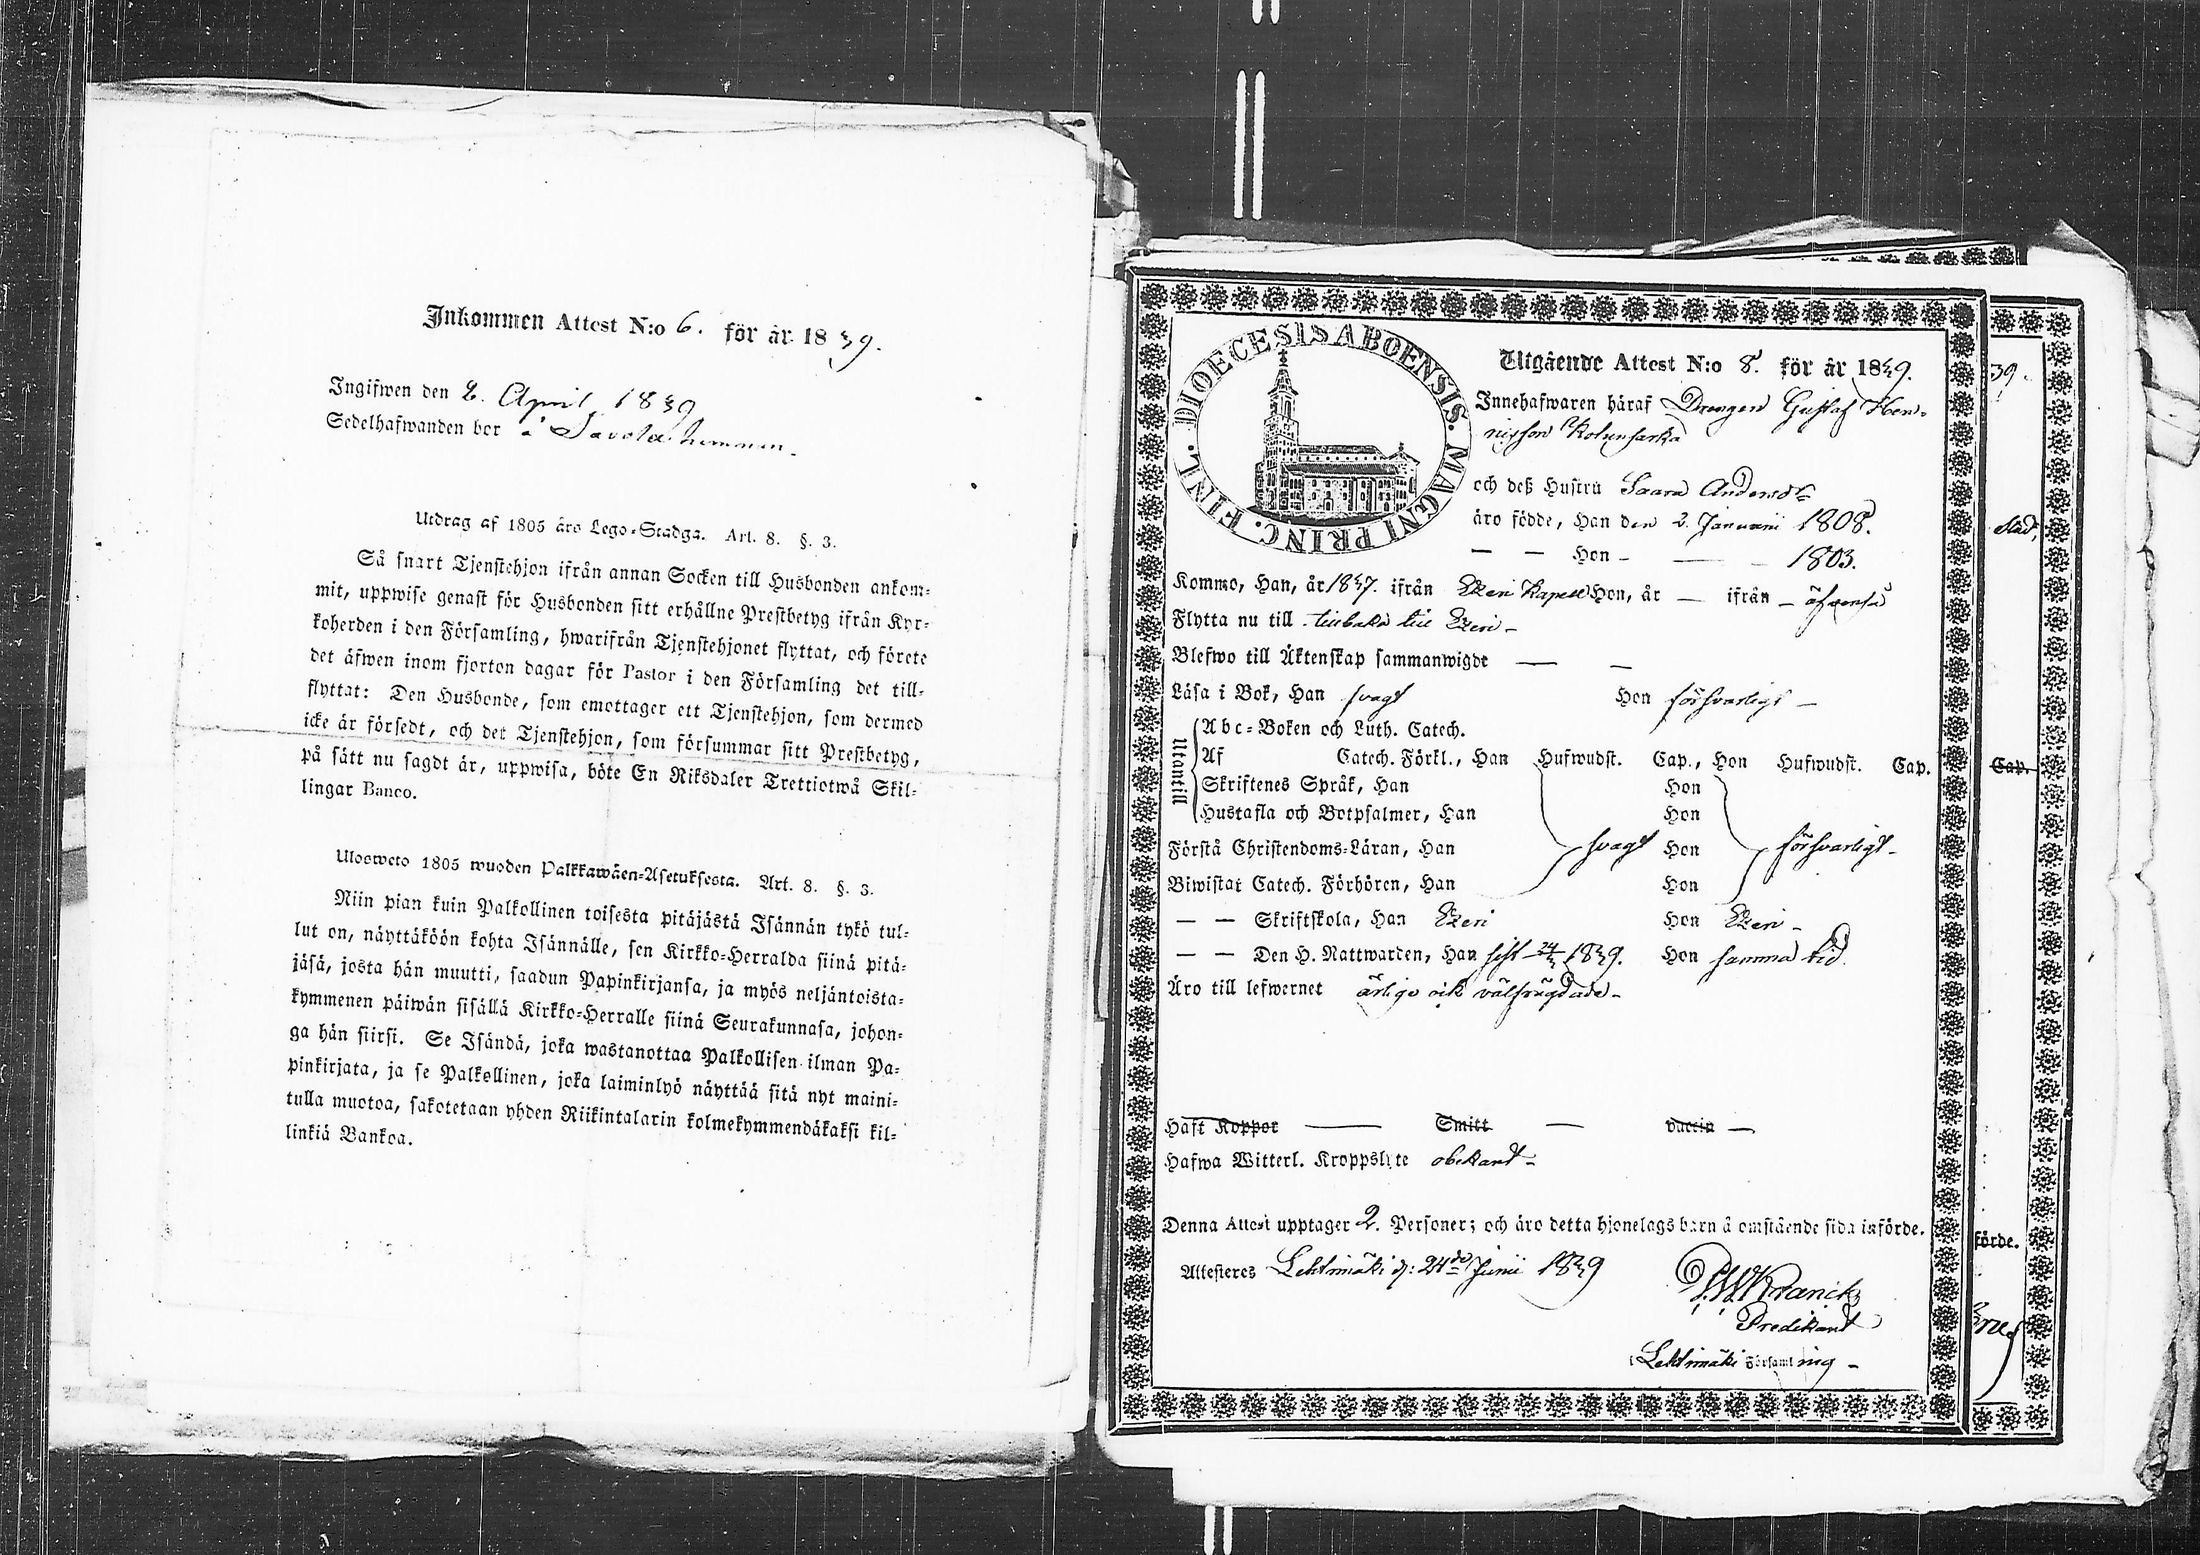 Inkommen Attest N:o 6. för år 1839.
Ingifwen den 2. April 1839
Sedelhafwanden bor å Savola hemman.
Utdrag af 1805 års Lego-Stadga. Art. 8. §. 3.
Så snart Tjenstehjon ifrån annan Socken till Husbonden ankom-
mit, uppwise genast för Husbonden sitt erhållne Prestbetyg ifrån Kyr-
koherden i den Församling, hwarifrån Tjenstehjonet flyttat, och förete
det äfwen inom fjorton dagar för Pastor i den Församling det till-
flyttat: Den Husbonde, som emottager ett Tjenstehjon, som dermed
icke är försedt, och det Tjenstehjon, som försummar sitt Prestbetyg,
på sätt nu sagdt är, uppwisa, böte En Riksdaler Trettiotwå Skil-
lingar Banco.
Ulosweto 1805 wuoden Palkkawäen-Asetuksesta. Art. 8. §. 3.
Niin pian kuin Palkollinen toisesta pitäjästä Isännän tykö tul-
lut on, näyttäköön kohta Isännälle, sen Kirkko-Herralda siinä pitä-
jäsä, josta hän muutti, saadun Papinkirjansa, ja myös neljäntoista-
kymmenen päiwän sisällä Kirkko-Herralle siinä Seurakunnasa, johon-
ga hän siirsi. Se Isändä, joka wastanottaa Palkollisen ilman Pa-
pinkirjata, ja se Palkollinen, joka laiminlyö näyttää sitä nyt maini-
tulla muotoa, sakotetaan yhden Riikintalarin kolmekymmendäkaksi kil-
linkiä Bankoa.
DIOECESIS ABOENSIS. MAGNI PRINC. FINL.
Utgående Attest N:o 8. för år 1839.
Innehafwaren häraf Drengen Gustaf Hen-
nigsson
och deß Hustru Saara Andersdr
äro födde, Han den 2. Januarii 1808.
— — Hon — — — 1803.
Kommo, Han, år 1837. ifrån Etzeri Kapell Hon, år — ifrån — äfvenså
Flytta nu till tillbaka till Etzeri —
Blefwo till Äktenskap sammanwigde — —
Läsa i Bok, Han svagt Hon försvarligt —
Utantill
Abc-Boken och Luth. Catech.
Af Catech. Förkl., Han Hufwudst. Cap., Hon Hufwudst. Cap.
Skriftenes Språk, Han Hon
Hustafla och Botpsalmer, Han Hon
Förstå Christendoms-Läran, Han svagt Hon försvarligt —
Biwistat Catech. Förhören, Han Hon
— — Skriftskola, Han Etzeri Hon Etzeri —
— — Den H. Nattwarden, Han sist 24/3 1839. Hon samma tid.
Äro till lefwernet ärlige och välfrägdade —
Haft Koppor — Smitt — vaccin —
Hafwa Witterl. Kroppslyte obekant —
Denna Attest upptager 2. Personer; och äro detta hjonelags barn å omstående sida införde.
Attesteres Lehtimäki d: 24de Junii 1839
Kranck
Predikant
i Lehtimäki Församling —
39.
Cap.
förde.